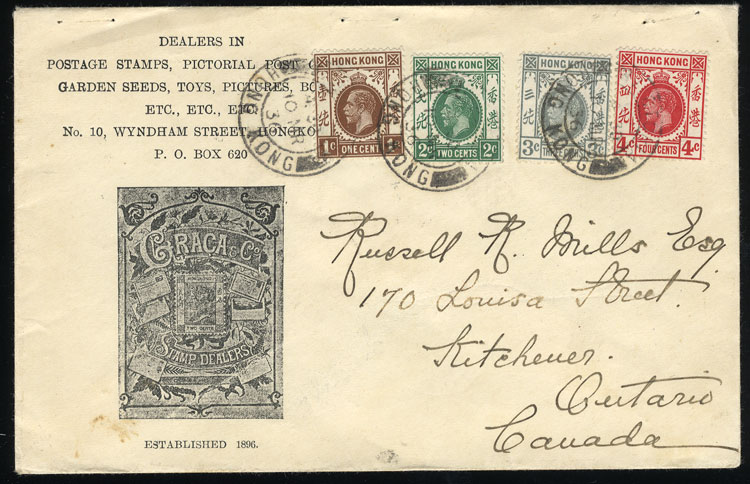 DEALERS IN
POSTAGE STAMPS, PICTORIAL POST
GARDEN SEEDS, TOYS, PICTURES,
ETC., ETC.,
No. 10, WYNDHAM STREET,
P. O. BOX 620
HONG KONG
香港
壹
1c ONE CENT
HONG KONG
香港
2c TWO CENTS 2c
HONG KONG
香港
三仙
3c
HONG KONG
香港
四仙
4c FOUR CENTS 4c
HONG KONG
10 MR
36
HONG KONG
HONG KONG
GRACA & Co
TWO CENTS
STAMP DEALERS
ESTABLISHED 1896.
Russell R. Mills Esq
170 Louisa Street.
Kitchener.
Ontario
Canada